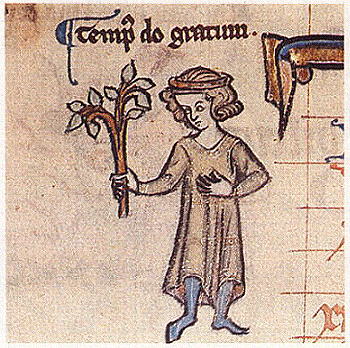 ¶ temp̄ do gratum.